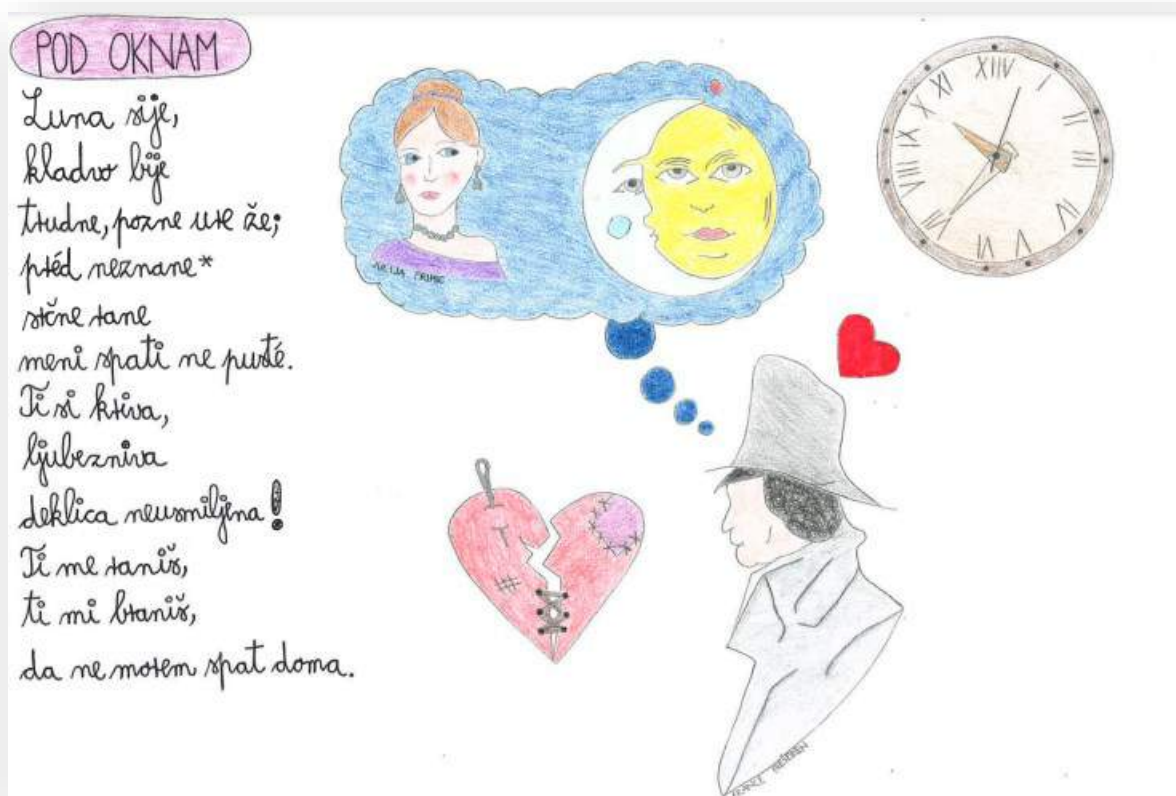 POD OKNAM
Luna sije,
kladvo bije
trudne, pozne ure že;
préd neznane*
srčne rane
meni spati ne pusté.
Ti si kriva,
ljubezniva
deklica neusmiljena!
Ti me raniš,
ti mi braniš,
da ne morem spat doma.
JULIJA PRIMIC
FRANCE PREŠEREN